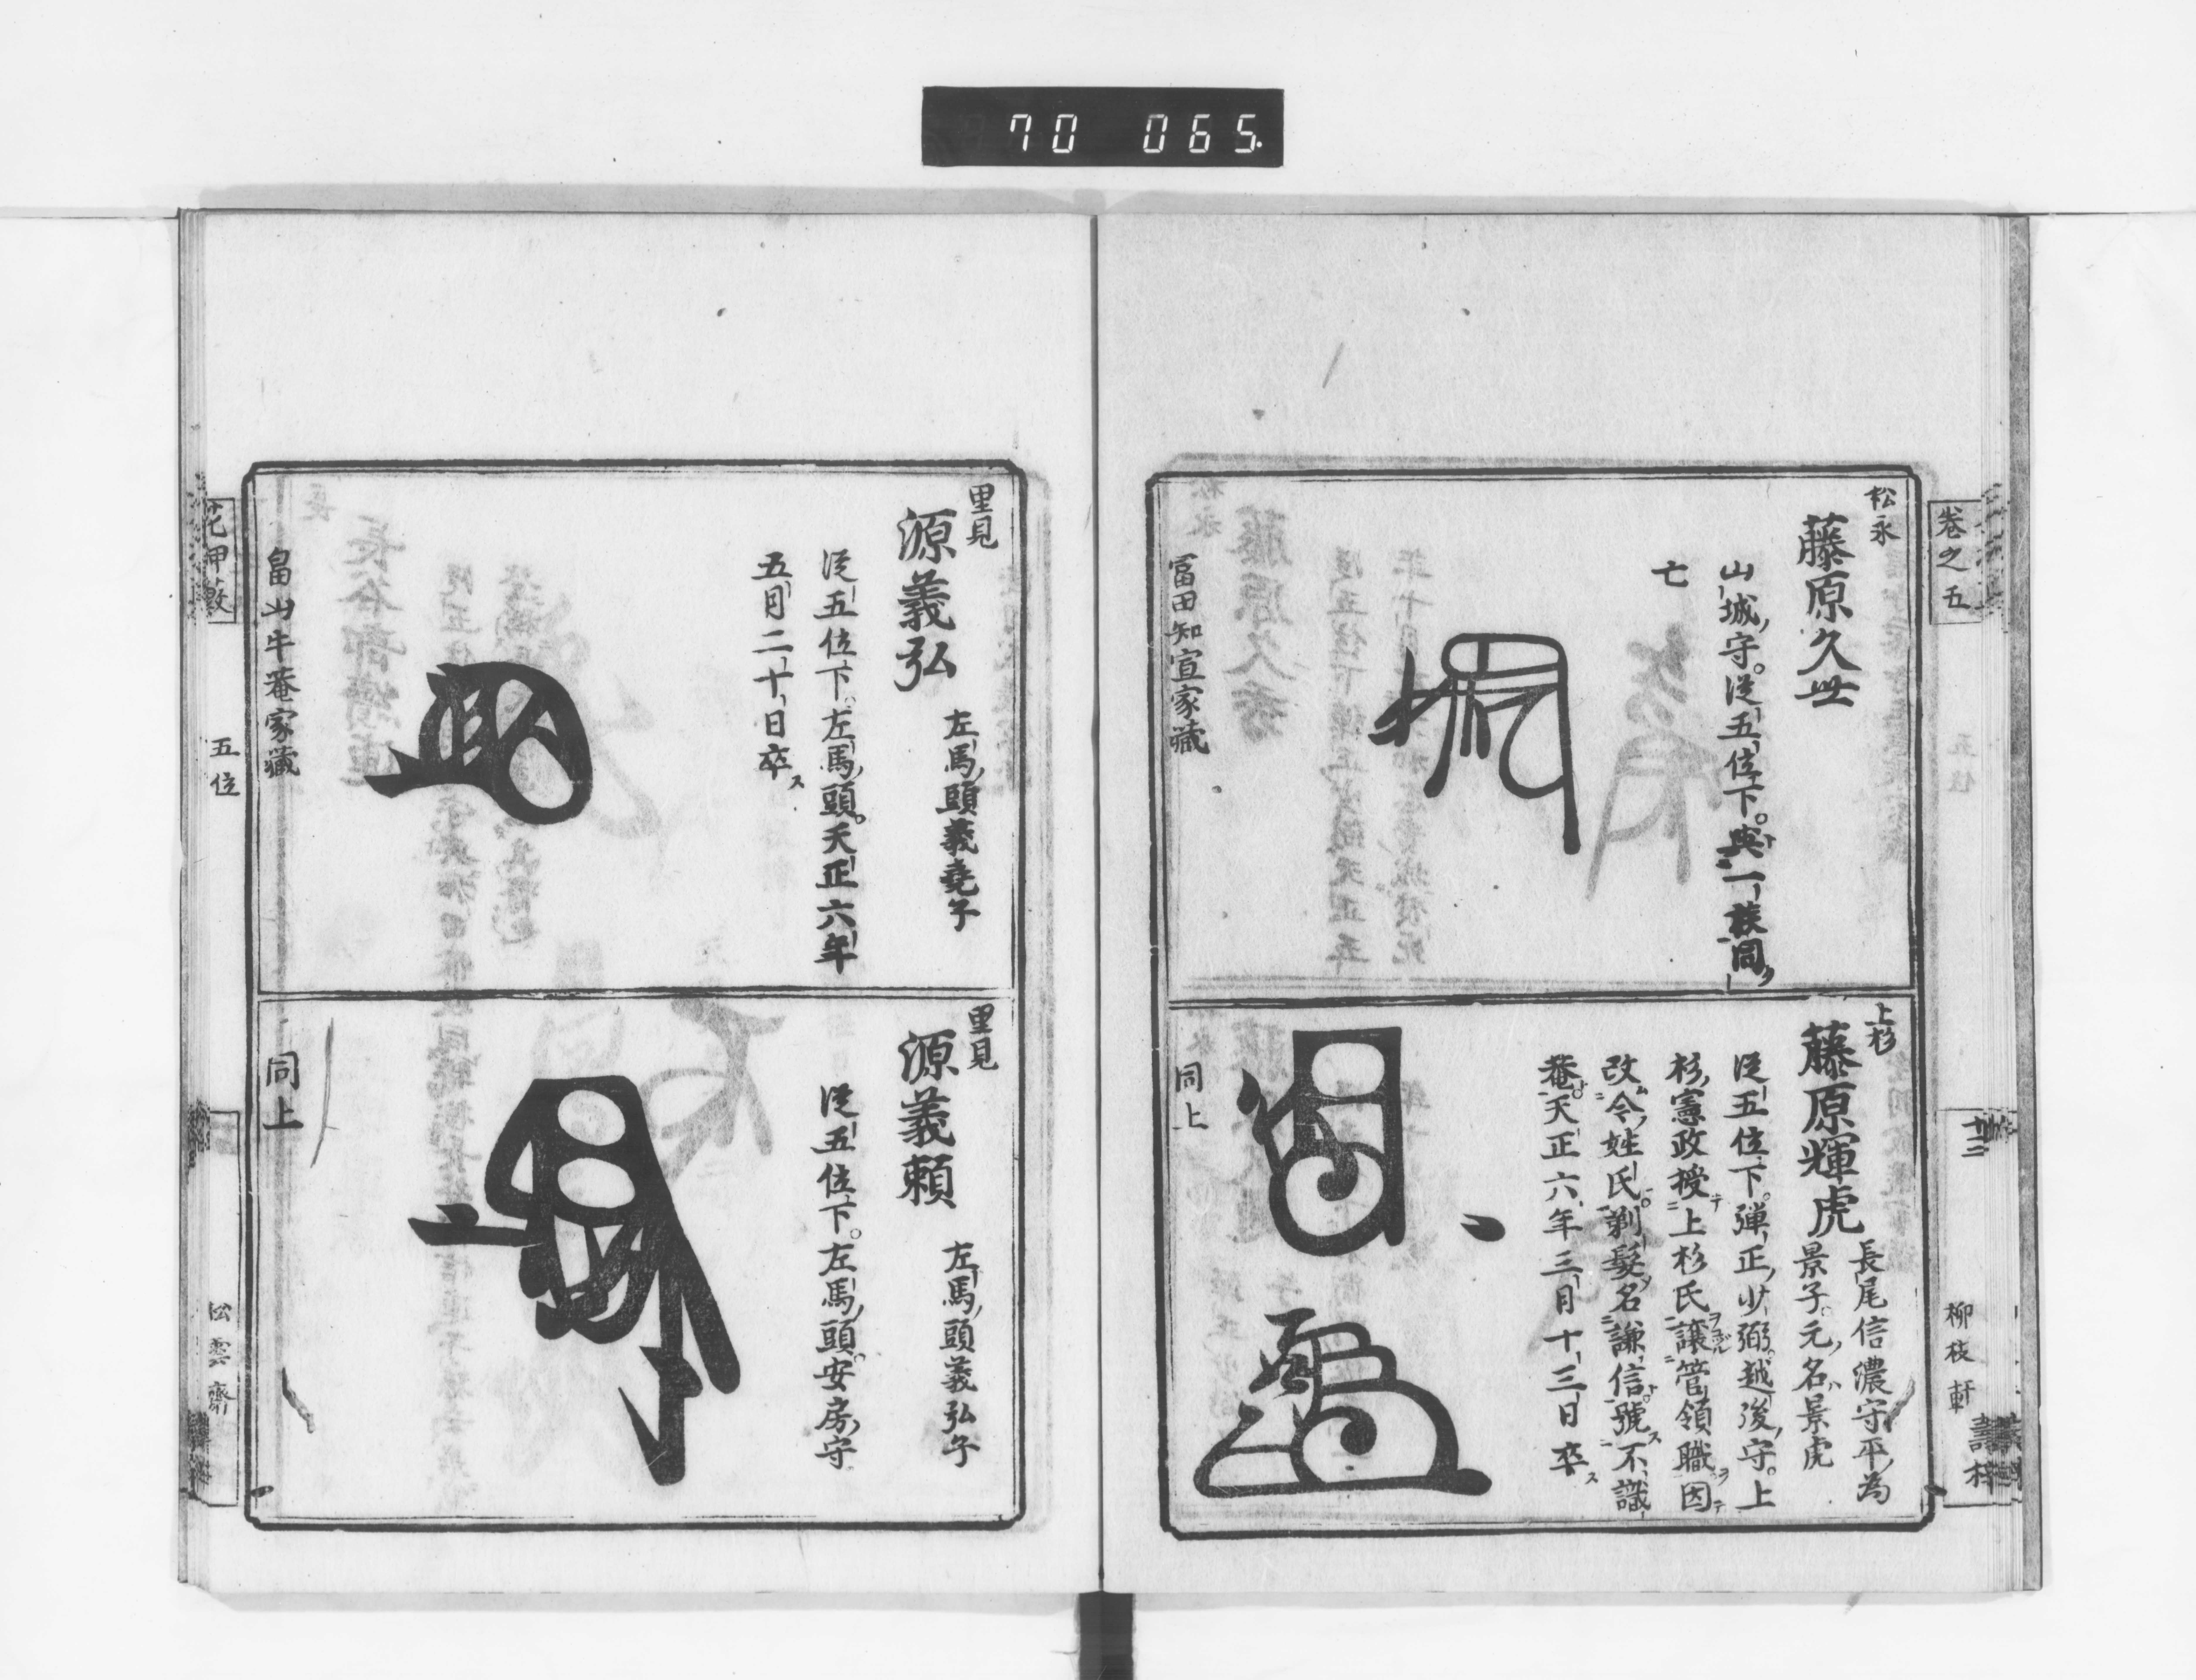 70 065.
卷之五
柳枝軒
松永
藤原久世
山城守。従五位下。與一族同
亡
冨田知宣家藏
上杉
藤原輝虎
長尾信濃守平為
景子。元名景虎
従五位下。弾正少弼。越後守。上
杉憲政授上杉氏譲管領職因
改今姓氏。剃髮名謙信號不識
菴。天正六年三月十三日卒ス
同上
里見
源義弘
左馬頭義堯子
従五位下。左馬頭。天正六年
五月二十日卒ス
畠山牛菴家藏
里見
源義頼
左馬頭義弘子
従五位下。左馬頭。安房守
同上
花押藪
五位
松雲齋